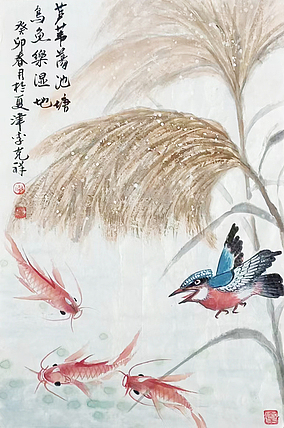 芦苇荡池塘
鸟鱼乐湿地
癸卯春月於夏津李克祥